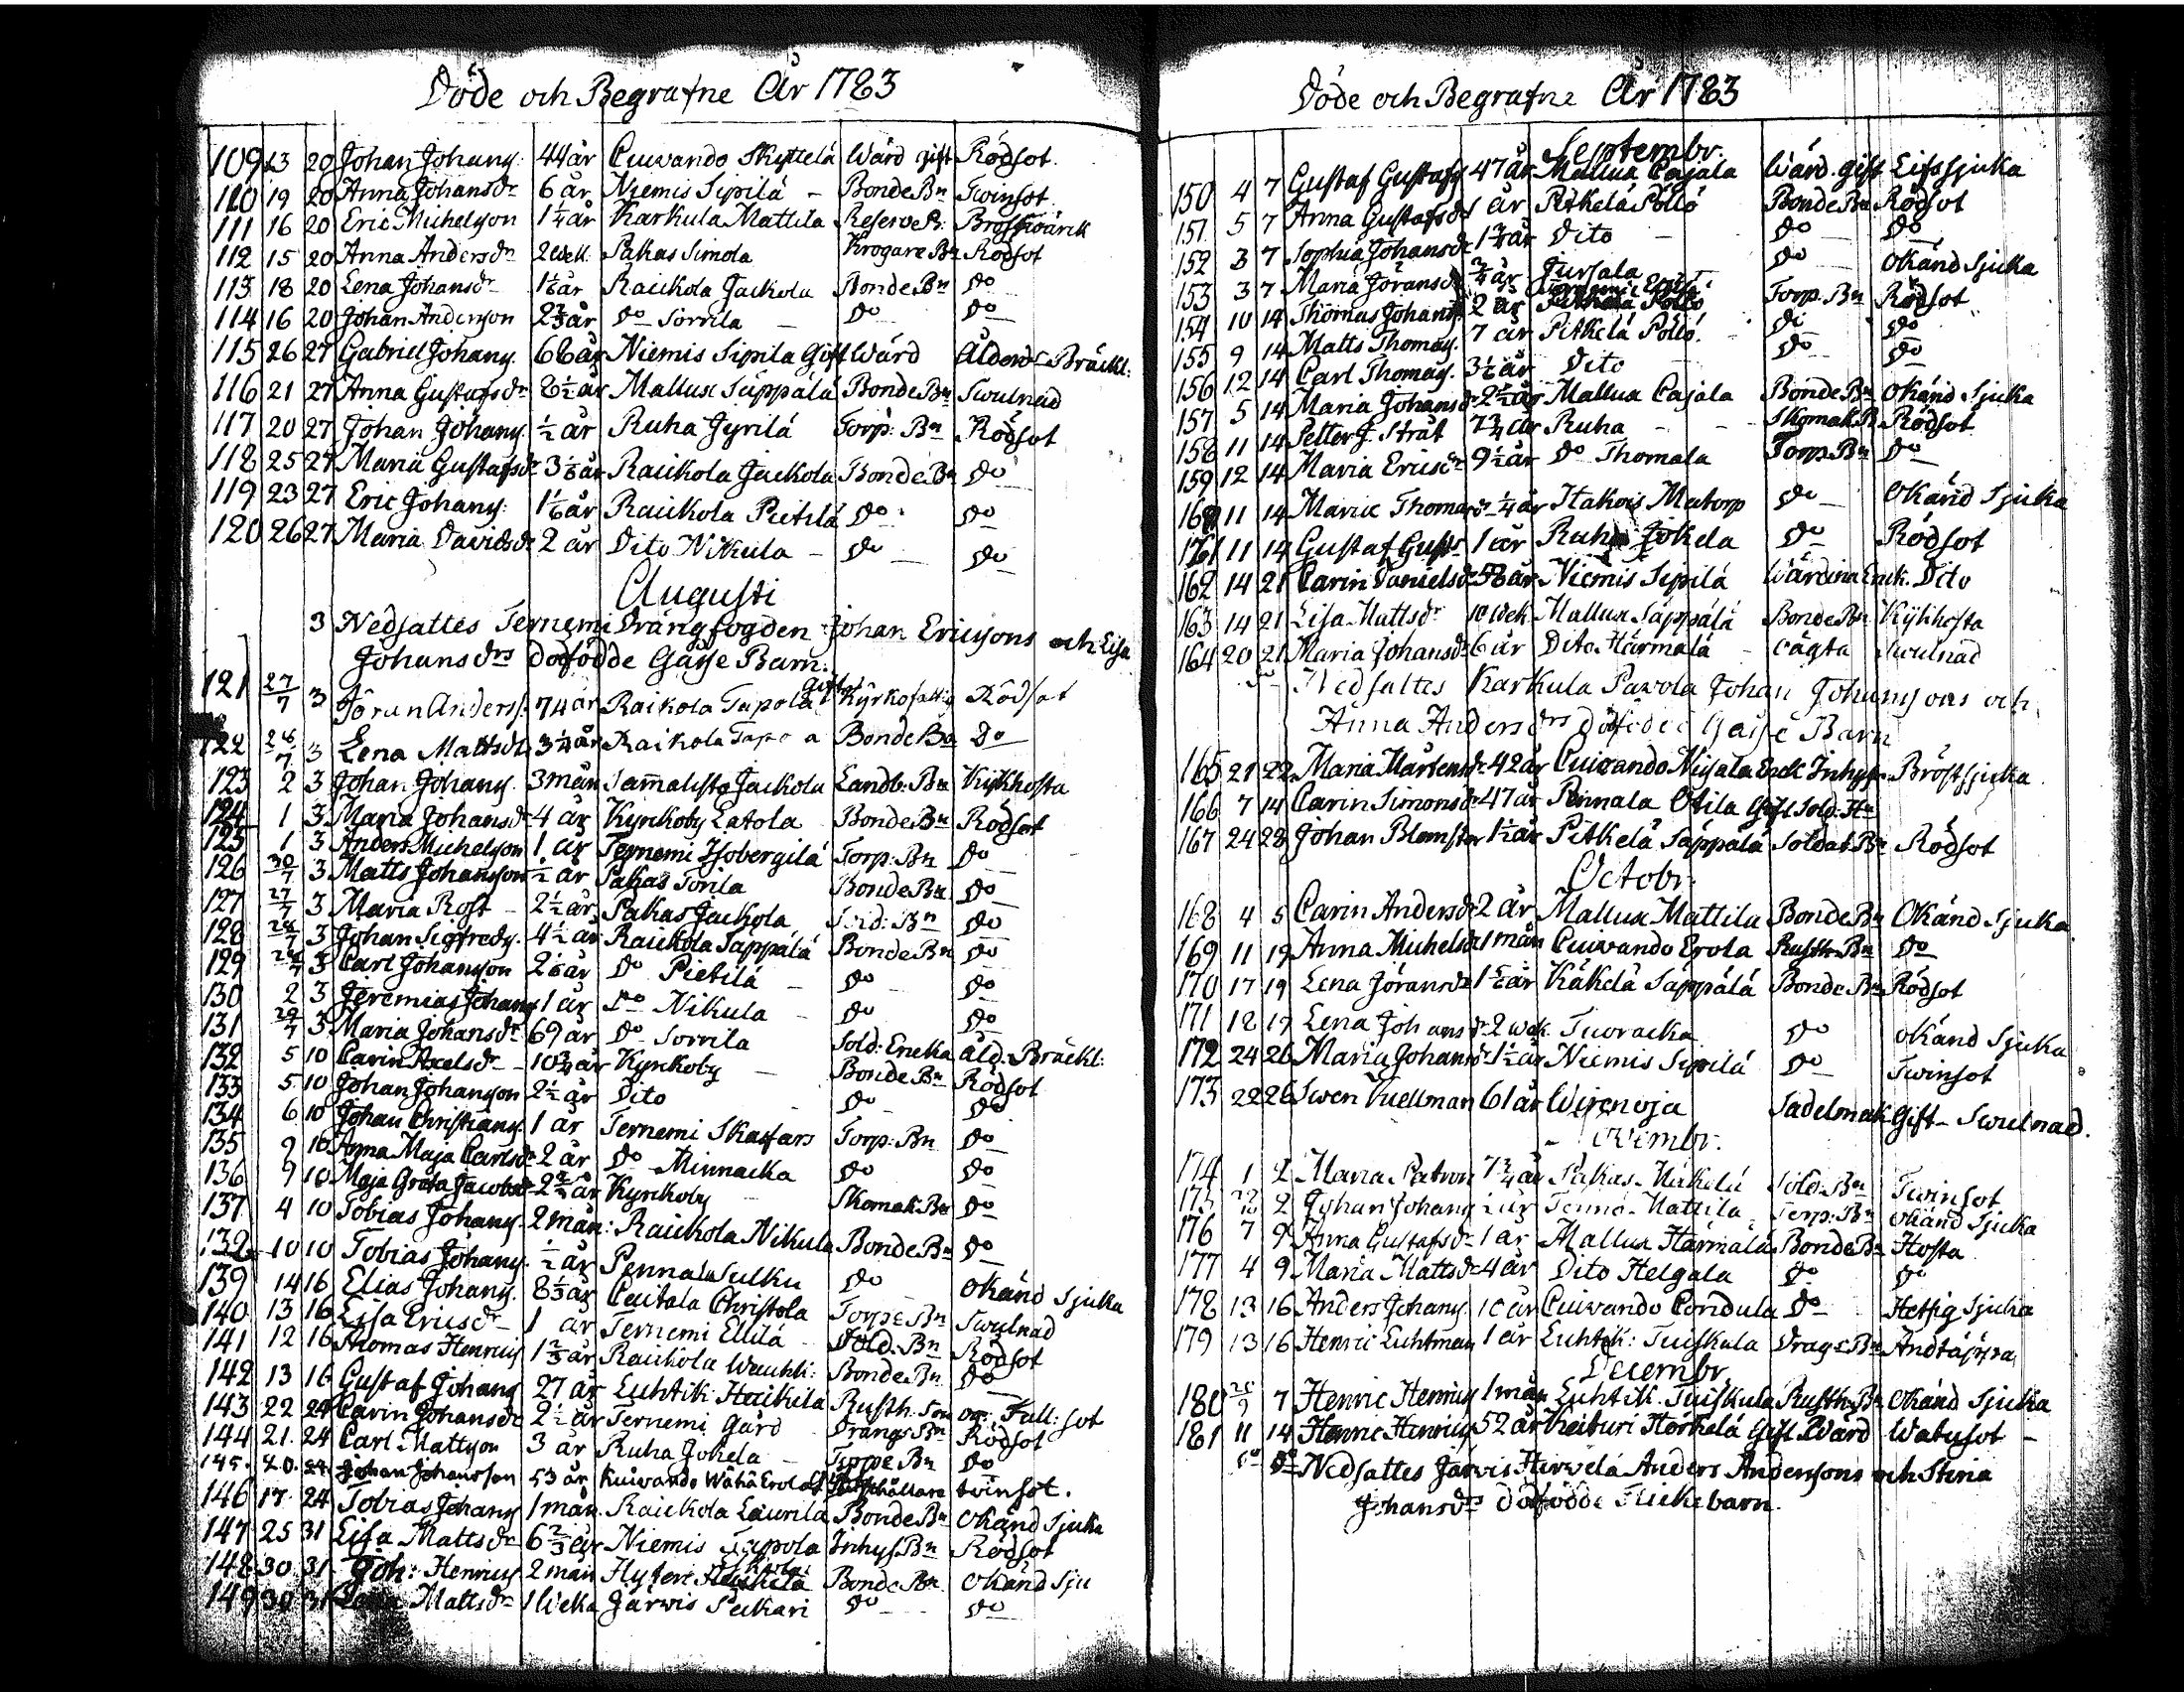 Döde och Begrafne År 1783
109 13 20 Johan Johans. 44 år Cuivando Skyttelä Wärd gift Rödsot
110 19 20 Anna Johansdr 6 år Niemis Sipilä - Bonde Bn Twinsot
111 16 20 Eric Michelson 1 1/4 år Karkula Mattila Reserve K. Bröstwärk
112 15 20 Anna Andersdr 2 wek. Pakas Simola Krogare Bn Rödsot
113 18 20 Lena Johansdr 1 1/2 år Raukola Jackola Bonde Bn Do
114 16 20 Johan Anderson 2 2/3 år Do Sorrila - Do Do
115 26 27 Gabriel Johans. 66 år Niemis Sipila Gift Wärd Ålderds Bräckl:
116 21 27 Anna Gustafsdr 8 1/2 år Mallux Säppälä Bonde Bn Swulnad
117 20 27 Johan Johans. 1/2 år Ruha Jyrilä Torp: Bn Rödsot
118 25 27 Maria Gustafsdr 3 1/6 år Raukola Jackola Bonde Bn Do
119 23 27 Eric Johans: 1 1/6 år Raukola Pietilä Do Do
120 26 27 Maria Davidsdr 2 år Dito Nikula - Do Do
Augusti
3 Nedsattes Ternemi Drängfogden Johan Ericsons och Lisa
Johansdrs dödfödde Gåsse Barn.
121 27/7 3 Jöran Anderss. 74 år Raikola Tapola Gift Kyrkofattig Rödsot
122 28/7 3 Lena Mattsdr 3 1/4 år Raikola Tapo a Bonde Bn Do
123 2 3 Johan Johans. 3 mån Sammalisto Jackola Landb: Bn Kykhosta
124 1 3 Maria Johansdr 4 år Kyrckoby Latola Bonde Bn Rödsot
125 1 3 Anders Michelson 1 år Ternemi Isobergilä Torp: Bn Do
126 30/7 3 Matts Johansson 1/2 år Pakas Torila Bonde Bn Do
127 27/7 3 Maria Rost 2 1/2 år Pakas Jackola Sold: Bn Do
128 28/7 3 Johan Sigfreds. 4 1/2 år Raukola Säppälä Bonde Bn Do
129 3 Carl Johanson 2 1/6 år Do Pietilä - Do Do
130 2 3 Jeremias Johans 1 år Do Nikula - Do Do
131 29/7 3 Maria Johansdr 69 år Do Sorrila Sold: Encka åld: Bräckl:
132 5 10 Carin Axelsdr - 10 3/4 år Kyrckoby - Bonde Bn Rödsot
133 5 10 Johan Johanson 2 1/2 år Dito Do Do
134 6 10 Johan Christians. 1 år Ternemi Skaffars Torp: Bn Do
135 9 10 Anna Maja Carlsdr 2 år Do Minnacka Do Do
136 9 10 Maja Greta Jacobsdr 2 3/4 år Kyrckoby Skomak: Bn Do
137 4 10 Tobias Johans. 2 mån: Raukola Nikula Bonde Bn Do
138 10 10 Tobias Johans. 1/2 år Pennala Sulku Do okänd Sjuka
139 14 16 Elias Johans. 8 1/3 år Cautala Christola Torpe Bn Swulnad
140 13 16 Lisa Ericsdr 1 år Ternemi Ellilä - Sold: Bn Rödsot
141 12 16 Thomas Henrics 1 2/3 år Raukola Wauhk: Bonde Bn Do
142 13 16 Gustaf Johans 27 år Luhtik: Heickilä Rusth: Son og: Full: sot
143 22 24 Carin Johansdr 2 1/2 år Ternemi Gård Drängs Bn Rödsot
144 21 24 Carl Mattson 3 år Ruha Jokela - Torpe Bn Do
145 20 24 Johan Johansson 53 år Kuiwando Wähä Erola twinsot.
146 17 24 Tobias Johans 1 mån. Raukola Laurila Bonde Bn okänd Sjuka
147 25 31 Lisa Mattsdr 6 2/3 år Niemis Tapola Inhys Bn Rödsot
148 30 31 Joh: Henrics 2 mån Hyteri Bonde Bn okänd Sju
149 30 31 Lena Mattsdr 1 Weka Järwis Peckari Do Do
Döde och Begrafne År 1783
Septembr.
150 4 7 Gustaf Gustafs 47 år Mallux Cajala Wärd. gift Lifssjuka
151 5 7 Anna Gustafsdr 1 år Pitkelä Pöllö Bonde Bn Rödsot
152 3 7 Sophia Johansdr 1 3/4 år Dito - Do Do
153 3 7 Maria Jöransdr 3/4 år Jursala Do okänd Sjuka
154 10 14 Thomas Johans 2 år Torp. Bn Rödsot
155 9 14 Matts Thomas. 7 år Pitkelä Pöllö. - Do Do
156 12 14 Carl Thomas. 3 1/2 år Dito - Do Do
157 5 14 Maria Johansdr 2 1/2 år Mallux Cajala Bonde Bn okänd Sjuka
158 11 14 Petter J. Strat 7 3/4 år Ruha - - Skomak B Rödsot
159 12 14 Maria Ericsdr 9 1/2 år Do Thomala Torp Bn Do
160 11 14 Maria Thomasdr 1/4 år Itakois Matorp Do okänd Sjuka
161 11 14 Gustaf Gusts 1 år Ruha Jokela Do Rödsot
162 14 21 Carin Danielsdr 58 år Niemis Sipilä Wärdina Enck. Dito
163 14 21 Lisa Mattsdr 10 wek Mallux Säppälä Bonde Bn Kykhosta
164 20 21 Maria Johansdr 6 år Dito Härmälä - Oägta Swulnad
Do Nedsattes Karkula Pawola Johan Johansons och
Anna Andersdrs dödfödde Gåsse Barn
165 21 22 Maria Mårtensdr 42 år Cuivando Nisala Enck Inhys Bröstsjuka
166 7 14 Carin Simonsdr 47 år Pennala Otila Gift Sold: Hu
167 24 28 Johan Blomster 1 1/2 år Pitkelä Säppälä Soldat Bn Rödsot
Octobr.
168 4 5 Carin Andersdr 2 år Mallux Mattila Bonde Bn Okänd Sjuka
169 11 19 Anna Michelsdr 1 mån Cuivando Erola Rusth Bn Do
170 17 19 Lena Jöransdr 1 1/2 år Käkelä Säppälä Bonde Bn Rödsot
171 12 19 Lena Johansdr 2 wek. Tuoracka Do okänd Sjuka
172 24 26 Maria Johansdr 1 1/2 år Niemis Sipilä Do Twinsot
173 22 26 Swen Kuellman 61 år Wirenoja Sadelmak Gift - Swulnad.
ovembr.
174 1 2 Maria Patron 7 3/4 år Pakas Mäkelä Sold. Bn Twinsot
175 2 Johan Johans 1/2 år Tenno Mattila Torp: Bn okänd Sjuka
176 7 9 Anna Gustafsdr 1 år Mallux Härmälä Bonde Bn Hosta
177 4 9 Maria Mattsdr 4 år Dito Helgala Do Do
178 13 16 Anders Johans. 10 år Cuivando Condula Do Hetsig Sjuka
179 13 16 Henric Luhtman 1 år Luhtik: Tuiskula Drage Bn Andtäpp:a
Decembr
180 7 Henric Henrics 1 mån Luhtik. Tuiskula Rusth: Bn Okänd Sjuka
181 11 14 Henric Henrics 52 år Keituri Hörkelä Gift Wärd Watusot -
Do Do Nedsattes Järvis Hirvelä Anders Andersons och Stina
Johansdrs dödfödde Flickebarn.